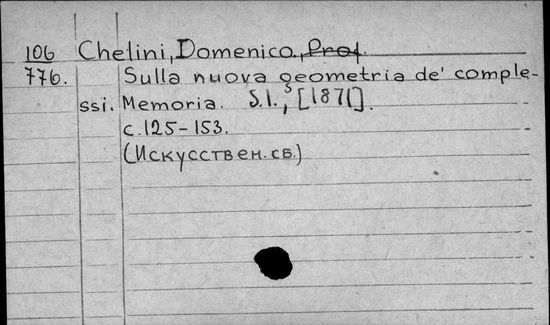 106 Chelini, Domenico, Prof.
776. Sulla nuova geometria de' comple-
ssi. Memoria. S.l., [1871].
с. 125-153.
(Искусствен. сб.)